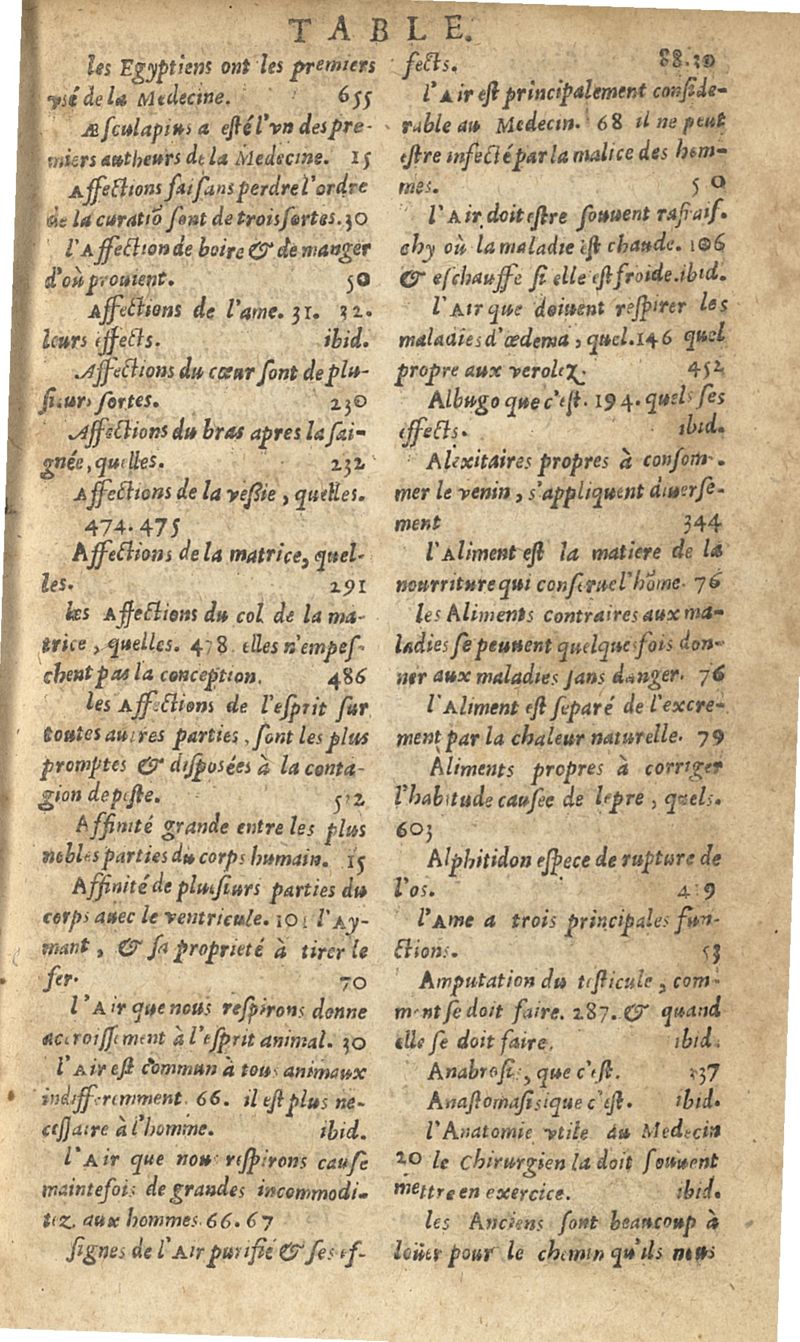 TABLE.
les Egyptiens ont les premiers
vsé de la Medecine. 655
Æsculapius a esté l'vn des pre-
miers autheurs de la Medecine. 15
Affections faisans perdre l'ordre
de la curatiõ sont de trois sortes. 30
l'Affection de boire & de manger
d'où prouient. 50
Affections de l'ame. 31. 32.
leurs effects. ibid.
Affections du cœur sont de plu-
sieurs sortes. 230
Affections du bras apres la sai-
gnée, quelles. 232
Affections de la vessie, quelles.
474. 475
Affections de la matrice, quel-
les. 291
les Affections du col de la ma-
trice, quelles. 478 elles n'empes-
chent pas la conception. 486
les Affections de l'esprit sur
toutes autres parties, sont les plus
promptes & disposées à la conta-
gion de peste.
Affinité grande entre les plus
nobles parties du corps humain. 15
Affinité de plusieurs parties du
corps auec le ventricule. l'Ay-
mant, & sa proprieté à tirer le
fer. 70
l'Air que nous respirons donne
accroissement à l'esprit animal. 30
l'Air est commun à tous animaux
indifferemment. 66. il est plus ne-
cessaire à l'homme. ibid.
l'Air que nous respirons cause
maintefois de grandes incommodi-
tez aux hommes. 66. 67
signes de l'Air purifié & ses ef-
fects. 88.30
l'Air est principalement conside-
rable au Medecin. 68 il ne peut
estre infecté par la malice des hom-
mes. 50
l'Air doit estre souuent rafrais-
chy où la maladie est chaude. 106
& eschauffe si elle est froide. ibid.
l'Air que doiuent respirer les
maladies d'œdema, quel. 146 quel
propre aux verolez. 452
Albugo que c'est. 194. quels ses
effects. ibid.
Alexitaires propres à consom-
mer le venin, s'appliquent diuerse-
ment 344
l'Aliment est la matiere de la
nourriture qui conserue l'hõme. 76
les Aliments contraires aux ma-
ladies se peuuent quelquefois don-
ner aux maladies sans danger. 76
l'Aliment est separé de l'excre-
ment par la chaleur naturelle. 79
Aliments propres à corriger
l'habitude causee de lepre, quels.
603
Alphitidon espece de rupture de
l'os.
l'Ame a trois principales fun-
ctions. 53
Amputation du testicule, com-
ment se doit faire. 287. & quand
elle se doit faire. ibid.
Anabrosis, que c'est.
Anastomasis que c'est. ibid.
l'Anatomie vtile au Medecin
20 le Chirurgien la doit souuent
mettre en exercice. ibid.
les Anciens sont beaucoup à
loüer pour le chemin qu'ils nous